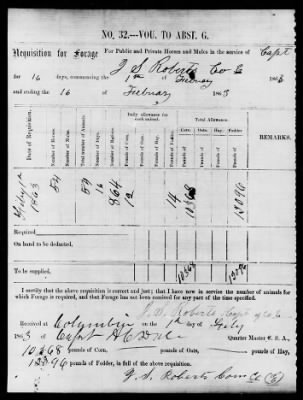 NO. 32.—VOU. TO ABST. G.
Requisition for Forage For Public and Private Horses and Mules in the service of Capt
J S Roberts Co E
for 16 days, commencing the 1st of Febuary 1863
and ending the 16 of Febuary 1863
Date of Requisition. Number of Horses. Number of Mules. Total Number of Animals. Number of Days. Number of Rations. Daily allowance for each animal. Total Allowance. REMARKS.
Pounds of Corn. Pounds of Oats. Pounds of Hay. Pounds of Fodder. Corn. Oats. Hay. Fodder.
1863 54 54 16 864 12 14 10368 12096
Required
On hand to be deducted.
To be supplied. 10368 12096
I certify that the above requisition is correct and just; that I have now in service the number of animals for
which Forage is required, and that Forage has not been received for any part of the time specified.
Roberts Capt
Received at Columbia on the 1st day of Feby
1863 of Capt Quarter Master C. S. A.,
10368 pounds of Corn, pounds of Oats, pounds of Hay,
12096 pounds of Fodder, in full of the above requisition.
J. S. Roberts Com Co (E)